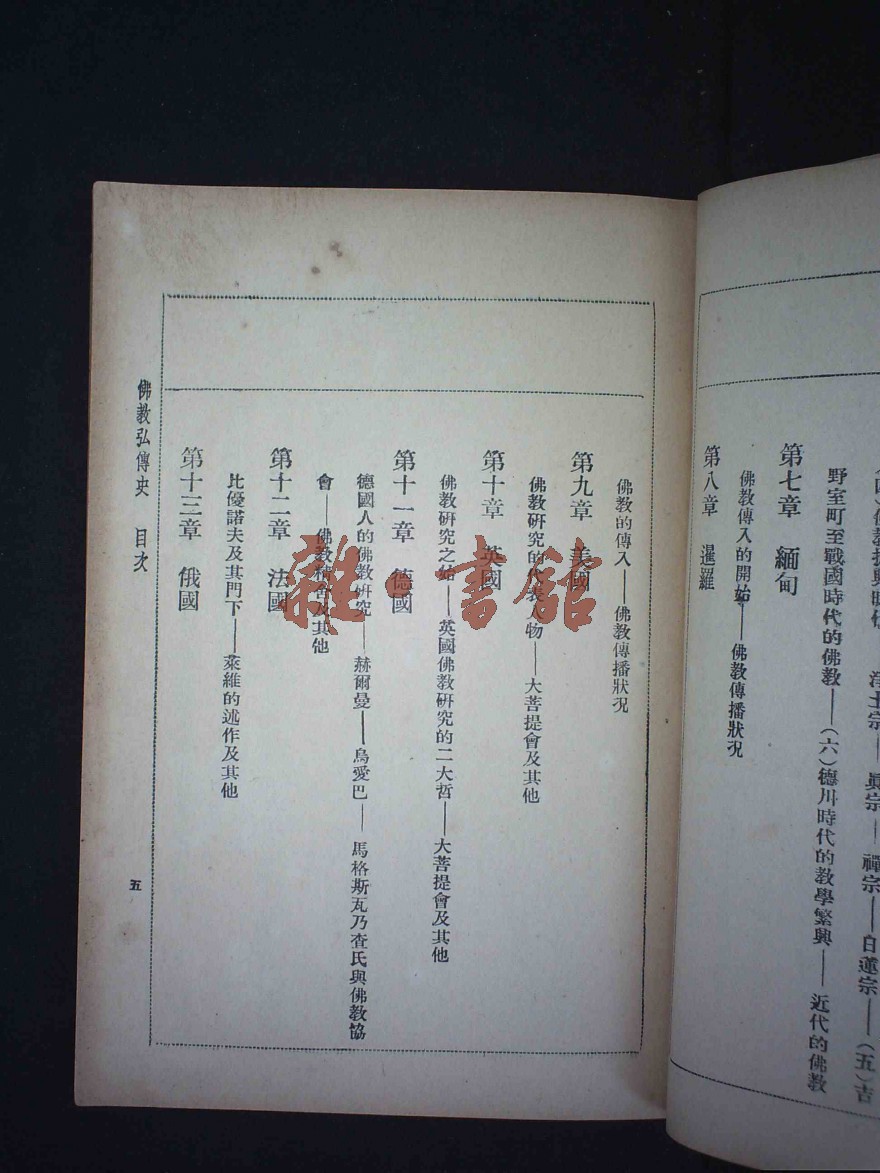 淨土宗——眞宗——禪宗——白蓮宗——(五)吉
野室町至戰國時代的佛教——(六)德川時代的教學繁興——近代的佛教
第七章 緬甸
佛教傳入的開始——佛教傳播狀況
第八章 暹羅
佛教的傳入——佛教傳播狀況
第九章 美國
佛教研究的代表人物——大菩提會及其他
第十章 英國
佛教研究之始——英國佛教研究的二大哲——大菩提會及其他
第十一章 德國
德國人的佛教研究——赫爾曼——烏愛巴——馬格斯瓦乃查氏與佛教協
會——佛教精舍及其他
第十二章 法國
比優諾夫及其門下——萊維的述作及其他
第十三章 俄國
佛教弘傳史 目次
五
雜·書館